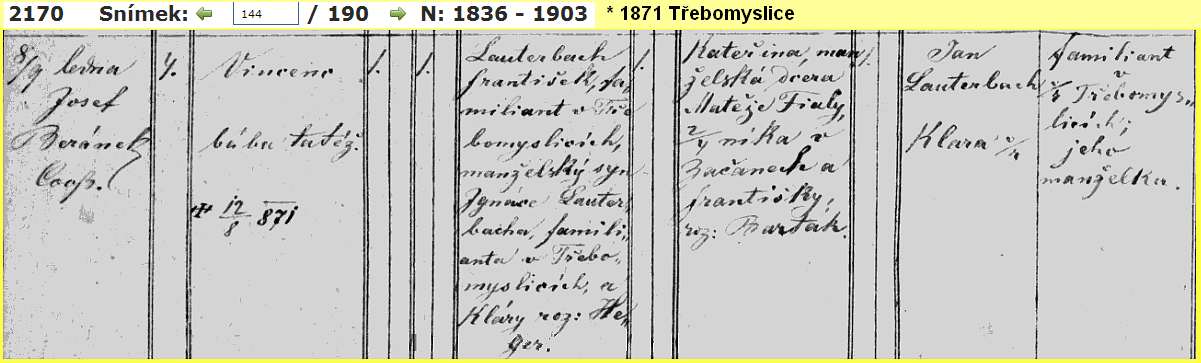 2170 Snímek: 144 / 190 N: 1836 - 1903 * 1871 Třebomyslice
8/9 ledna
Josef
Beránek
Coop.
Vincenc
bába tatáž.
12/8 871
1.
1.
Lauterbach
František, fa-
miliant v Tře
bomyslicích,
manželský syn
Ignáce Lauter„
bacha, famili„
anta v Třebo„
myslicích, a
Kláry roz: He„
ger.
1.
Kateřina, man
želská dcera
Matěje Fialy,
níka v
a
Františky,
roz: Barták.
Jan
Lauterbach
Klara
familiant
v
Třebomys„
licích;
jeho
manželka.